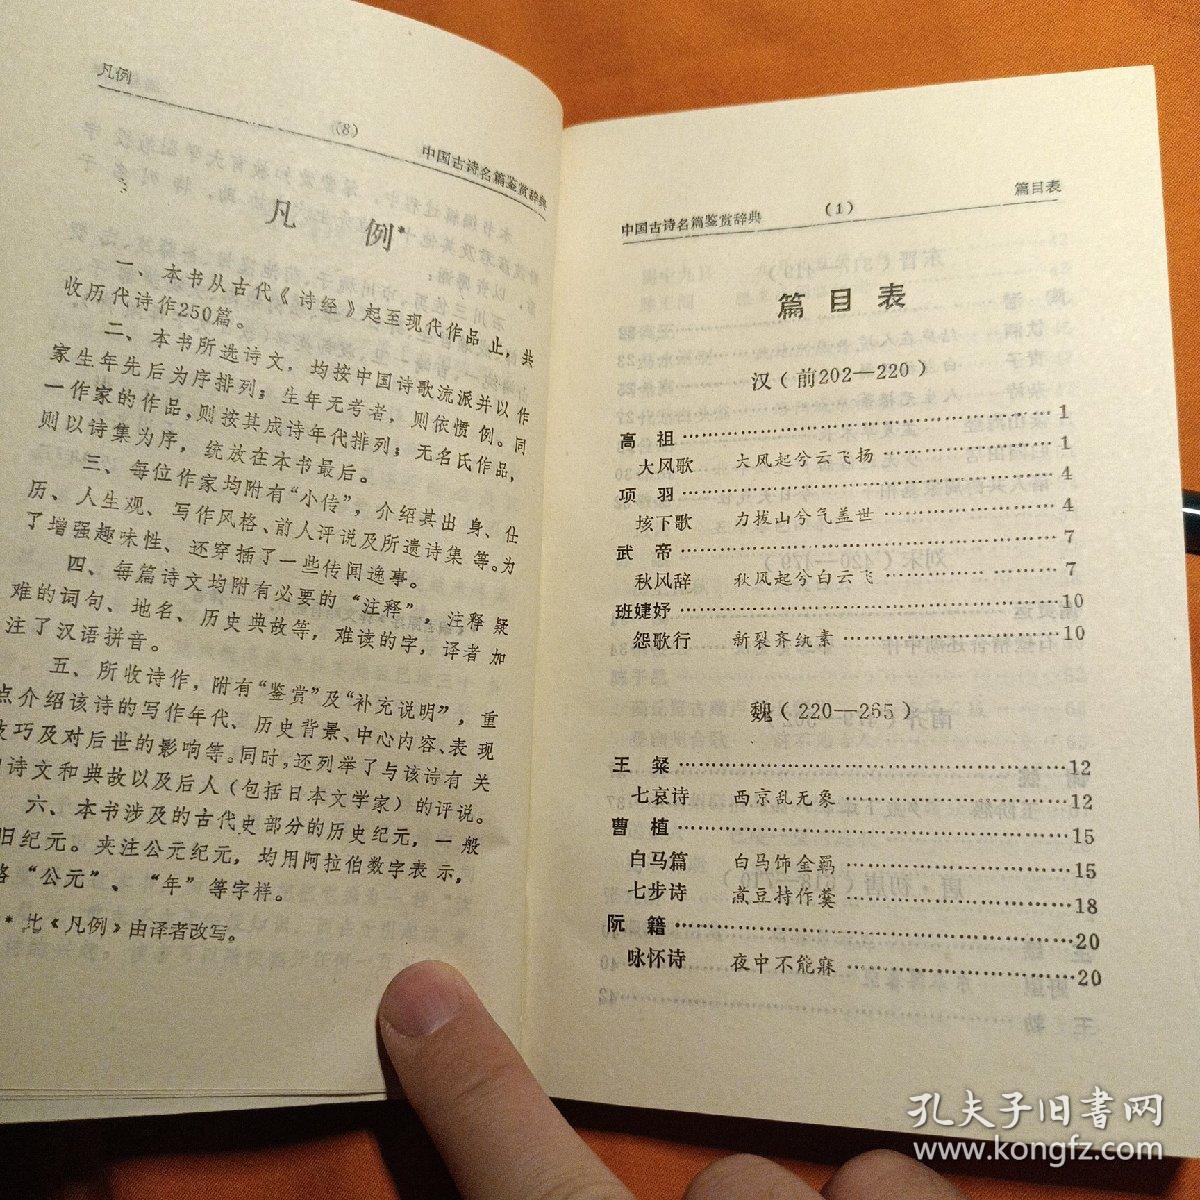 凡例
(8)
中国古诗名篇鉴赏辞典
凡 例*
一、本书从古代《诗经》起至现代作品止，共
收历代诗作250篇。
二、本书所选诗文，均按中国诗歌流派并以作
家生年先后为序排列；生年无考者，则依惯例。同
一作家的作品，则按其成诗年代排列；无名氏作品，
则以诗集为序，统放在本书最后。
三、每位作家均附有“小传”，介绍其出身、仕
历、人生观、写作风格、前人评说及所遗诗集等。为
了增强趣味性、还穿插了一些传闻逸事。
四、每篇诗文均附有必要的“注释”，注释疑
难的词句、地名、历史典故等，难读的字，译者加
注了汉语拼音。
五、所收诗作，附有“鉴赏”及“补充说明”，重
点介绍该诗的写作年代、历史背景、中心内容、表现
技巧及对后世的影响等。同时，还列举了与该诗有关
诗文和典故以及后人（包括日本文学家）的评说。
六、本书涉及的古代史部分的历史纪元，一般
旧纪元。夹注公元纪元，均用阿拉伯数字表示，
略“公元”、“年”等字样。
* 此《凡例》由译者改写。
中国古诗名篇鉴赏辞典
(1)
篇目表
篇目表
汉（前202—220）
高 祖……………………………………1
大风歌 大风起兮云飞扬……………1
项 羽……………………………………4
垓下歌 力拔山兮气盖世……………4
武 帝……………………………………7
秋风辞 秋风起兮白云飞……………7
班婕妤……………………………………10
怨歌行 新裂齐纨素…………………10
魏（220—265）
王 粲……………………………………12
七哀诗 西京乱无象…………………12
曹 植……………………………………15
白马篇 白马饰金羁…………………15
七步诗 煮豆持作羹…………………18
阮 籍……………………………………20
咏怀诗 夜中不能寐…………………20
孔夫子旧书网
www.kongfz.com